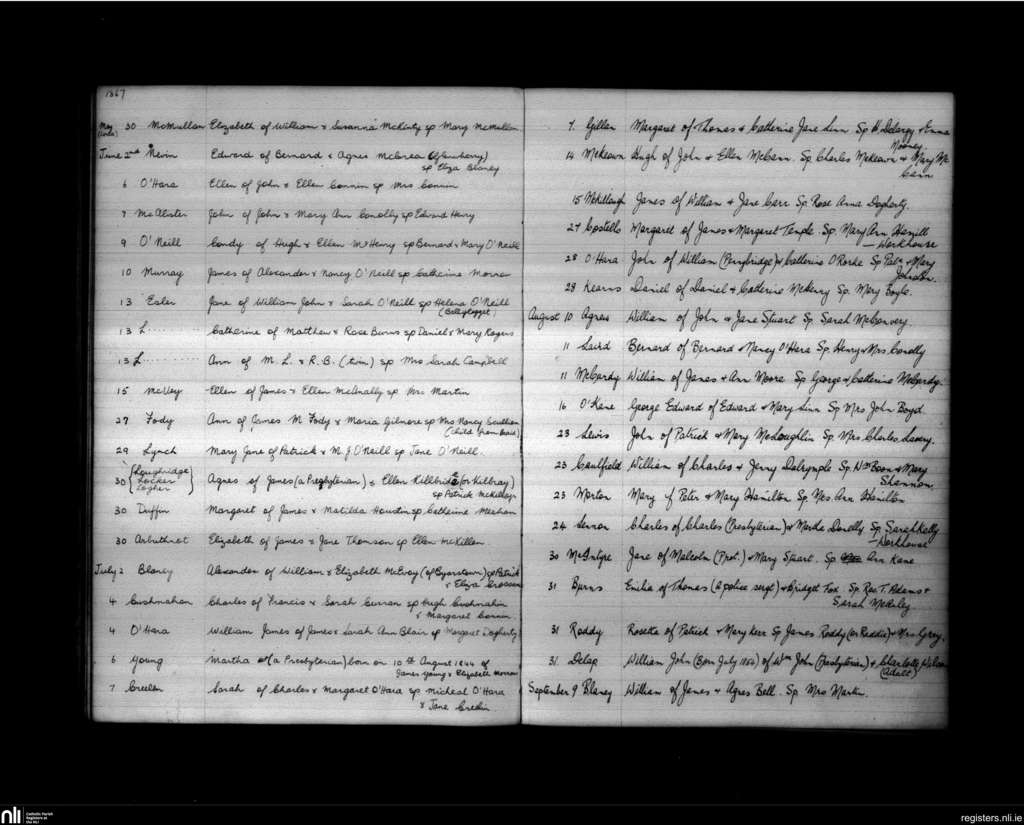 1867
May 30 McMullan Elizabeth of William & Susanna McKinty sp Mary McMullan
June 2nd Nevin Edward of Bernard & Agnes McCrea
sp Eliza Blaney
6 O'Hara Ellen of John & Ellen Connin sp Mrs Connin
7 McAlister John of John & Mary Ann Conolly sp Edward Henry
9 O'Neill Condy of Hugh & Ellen McHenry sp Bernard & Mary O'Neill
10 Murray James of Alexander & Nancy O'Neill sp Catherine
13 Esler Jane of William John & Sarah O'Neill sp Helena O'Neill
13 L Catherine of Matthew & Rose Burns sp Daniel & Mary Rogers
13 L Ann of M. L. & R. B. (twin) sp Mrs Sarah Campbell
15 McVey Ellen of James & Ellen McAnally sp Mrs Martin
27 Fody Ann of James M Fody & Maria Gilmore sp Mrs Nancy Scullion
(child from Braid)
29 Lynch Mary Jane of Patrick & M. J O'Neill sp Jane O'Neill.
30 Loughridge Agnes of James (a Presbyterian) & Ellen Killbride (or Kilbray)
sp Patrick McKillop
30 Duffin Margaret of James & Matilda Houston sp Catherine Meehan
30 Arbuthnot Elizabeth of James & Jane Thomson sp Ellen McKillen
July 2 Blaney Alexander of William & Elizabeth McEvoy sp Patrick
& Eliza Crossan
4 Cushnahan Charles of Francis & Sarah Curran sp Hugh Cushnahan
& Margaret Connin
4 O'Hara William James of James & Sarah Ann Blair sp Margaret Dogherty
6 Young Martha (a Presbyterian) born on 10th August 1844 of
James Young & Elizabeth Morrow
7 Creelin Sarah of Charles & Margaret O'Hara sp Micheal O'Hara
& Jane Creelin
7. Gillen Margaret of Thomas & Catherine Jane Linn Sp H. Delargy & Emma
Mooney
14 McKeown Hugh of John & Ellen McCann. Sp. Charles McKeown & Mary Mc
Cann
15 McKillough James of William & Jane Carr Sp. Rose Anna Dogherty.
27 Costello Margaret of James & Margaret Temple. Sp. Mary Ann
— Workhouse
28 O'Hara John of William (Perrybridge) & Catherine O'Rorke Sp Patk & Mary
Johnston.
28 Kearns Daniel of Daniel & Catherine McHenry Sp. Mary Boyle.
August 10 Agnew William of John & Jane Stuart Sp Sarah McConvery.
11 Laird Bernard of Bernard & Nancy O'Hara Sp. Henry & Mrs Conolly
11 McCordy William of James & Ann Moore Sp George & Catherine McCordy.
16 O'Kane George Edward of Edward & Mary Linn Sp Mrs John Boyd
23 Lewis John of Patrick & Mary McLoughlin Sp. Mrs Charles Lavery.
23 Caulfield William of Charles & Jenny Dalrymple Sp. Wm Boon & Mary
Shannon
23 Morton Mary of Peter & Mary Hamilton Sp Mrs Ann Hamilton
24 Lennon Charles of Charles (Presbyterian) & Martha Donelly Sp. Sarah Kelly
— Workhouse
30 McIntyre Jane of Malcolm (Prot.) & Mary Stuart. Sp Ann Kane
31 Burns Emilia of Thomas (a police sergt) & Bridget Fox Sp. Rev. T. Adams &
Sarah McAuley
31 Roddy Rosetta of Patrick & Mary Kerr Sp James Roddy (or Reddie) & Mrs Grey.
31 Delap William John (Born July 1850) of Wm John (Presbyterian) & Charlotte Wilson
(adult)
September 9 Blaney William of James & Agnes Bell. Sp Mrs Martin.
nli Catholic Parish
Registers at
the NLI
registers.nli.ie